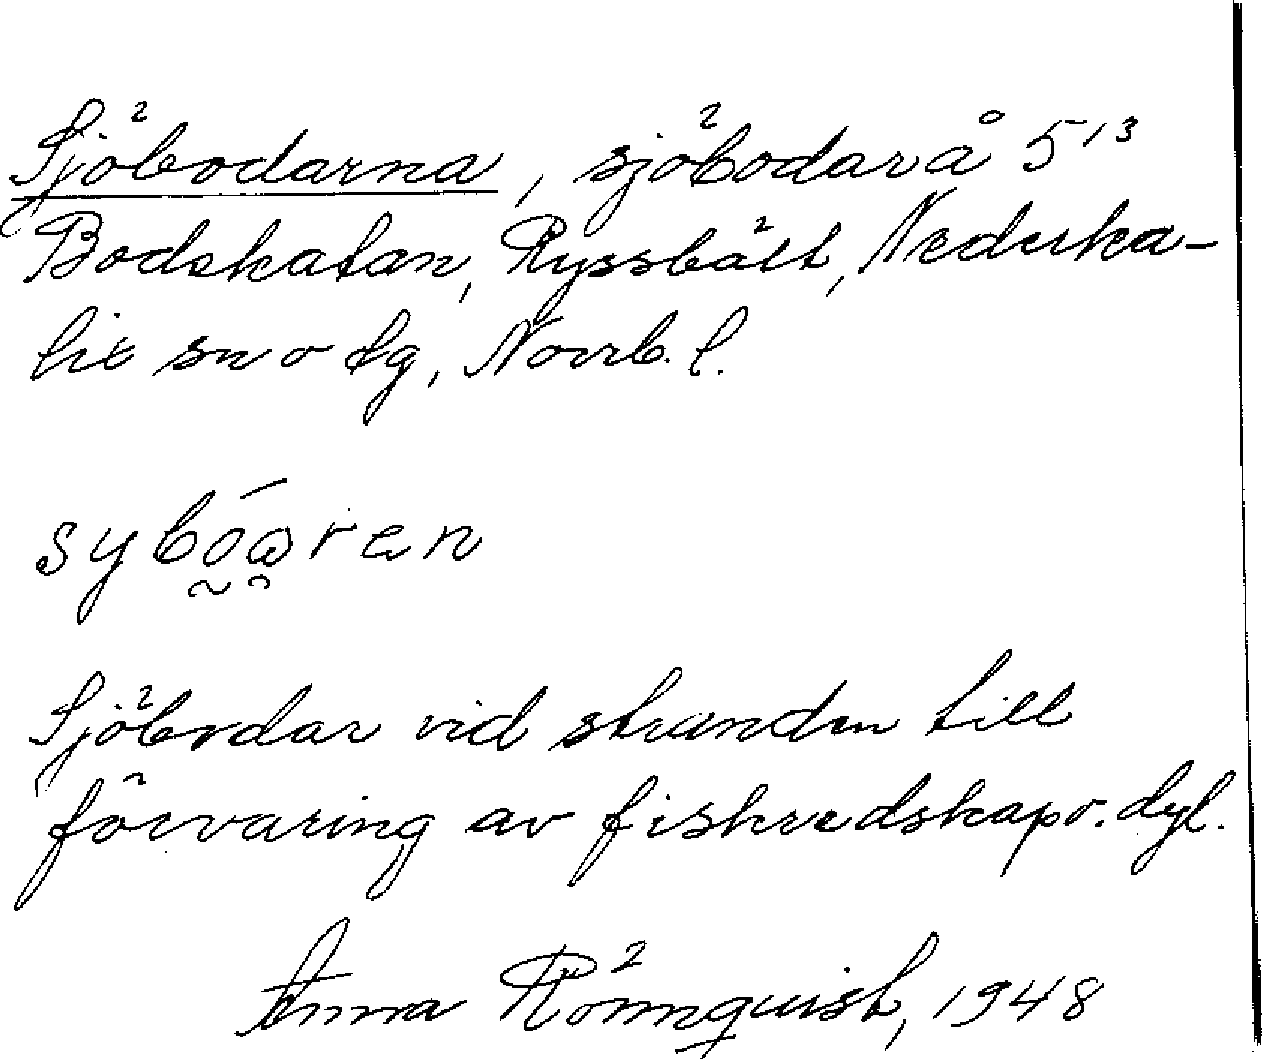 Sjöbodarna, sjöbodar å 5¹³
Bodskatan, Ryssbält, Nederka-
lix sn o tg, Norrb. l.
sybóa̯ren
Sjöbodar vid stranden till
förvaring av fiskredskap o. dyl.
Anna Rönnquist, 1948